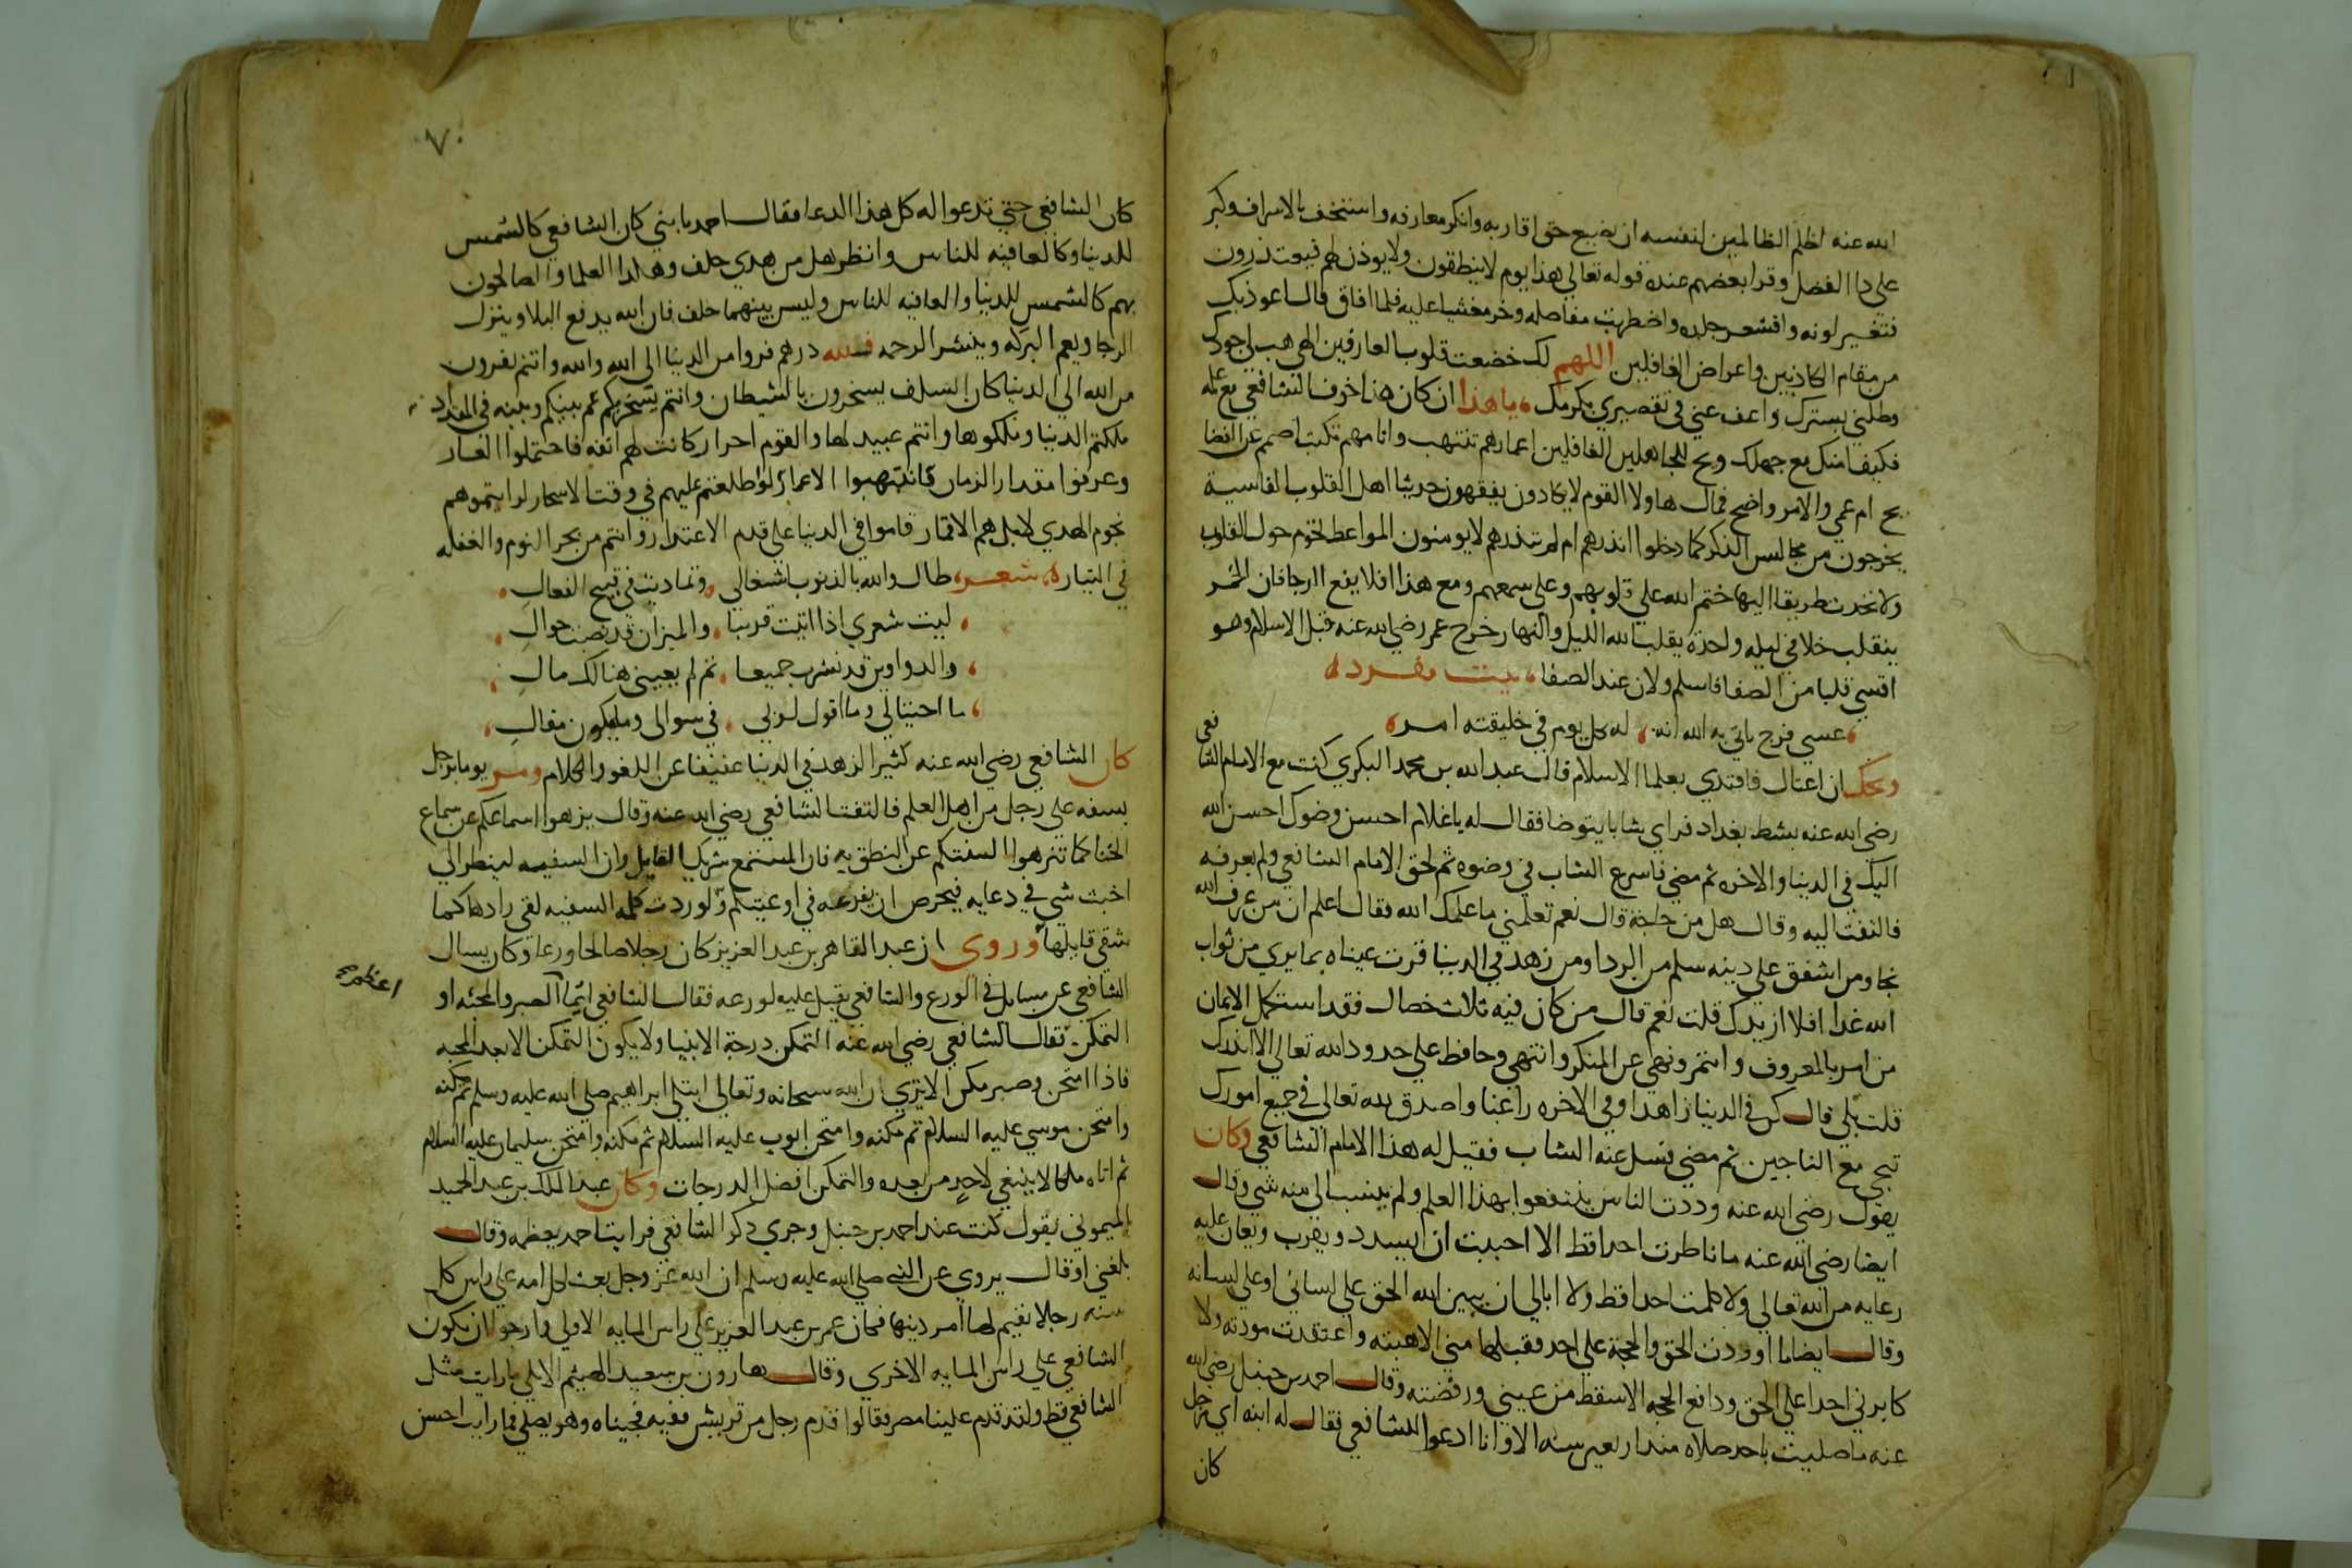 الله عنه اظلم الظالمين لنفسه ان يضيع حق اقاربه وانكر معارفه واستخف بالاشراف وكبر
علي ذا الفضل وقرا بعضهم عنده قوله تعالي هذا يوم لا ينطقون ولا يوذن لهم فيعتذرون
فتغير لونه واقشعر جلده واضطربت مفاصله وخر مغشيا عليه فلما افاق قال اعوذ بك
من مقام الكاذبين واعراض الغافلين اللهم لك خضعت قلوب العارفين الهي هب لي جودك
وظلني بسترك واعف عني في تقصيري بكرمك يا هذا ان كان هذا خوف الشافعي مع علمه
فكيف امنك مع جهلك ويح للجاهلين الغافلين اعمارهم تنتهب واثامهم تكتب اصمم عن القضا
ام عمي والامر واضح فمال هاولا القوم لا يكادون يفقهون حديثا اهل القلوب القاسية
يخرجون من مجالس الذكر كما دخلوا انذرهم ام لم تنذرهم لا يومنون المواعظ تحوم حول القلوب
ولا تجد طريقا اليها ختم الله علي قلوبهم وعلي سمعهم ومع هذا فلا يقع الرجا فان الخمر
ينقلب خلا في ليله واحدة يقلب الله الليل والنهار خرج عمر رضي الله عنه قبل الاسلام وهو
اقسي قلبا من الصفا فاسلم ولان عند الصفا بيت مفرد
عسي فرج ياتي به الله انه له كل يوم في خليقته امر
ويحك ان اعتال فاقتدي بعلما الاسلام قال عبد الله بن محمد البكري كنت مع الامام الشافعي
رضي الله عنه بشط بغداد فراي شابا يتوضا فقال له يا غلام احسن وضوك احسن الله
اليك في الدنيا والاخره ثم مضي فاسرع الشاب في وضوه ثم لحق الامام الشافعي ولم يعرفه
فالتفت اليه وقال هل من حاجة قال نعم تعلمني ما علمك الله فقال اعلم ان من عرف الله
نجا ومن اشفق علي دينه سلم من الردا ومن زهد في الدنيا قرت عيناه بما يري من ثواب
الله غدا افلا ازيدك قلت نعم قال من كان فيه ثلاث خصال فقد استكمل الايمان
من امر بالمعروف وائتمر ونهي عن المنكر وانتهي وحافظ علي حدود الله تعالي الا ازيدك
قلت بلي قال كن في الدنيا زاهدا وفي الاخره راغبا واصدق لله تعالي في جميع امورك
تنجي مع الناجين ثم مضي فسل عنه الشاب فقيل له هذا الامام الشافعي وكان
يقول رضي الله عنه وددت الناس ينتفعوا بهذا العلم ولم ينسب الي منه شي وقال
ايضا رضي الله عنه ما ناظرت احدا قط الا احببت ان يسدد ويقرب ويعان عليه
رعايه من الله تعالي ولا كلمت احدا قط ولا ابالي ان يبين الله الحق علي لساني او علي لسانه
وقال ايضا ما اوردت الحق والحجة علي احد فقبلها مني الا هبته واعتقدت مودته ولا
كابرني احدا علي الحق ودافع الحجه الا سقط من عيني ورفضته وقال احمد بن حنبل رضي الله
عنه ما صليت باحد صلاه منذ اربعين سنه الا وانا ادعوا للشافعي فقال له ابنه اي رجل
كان
٧٠
كان الشافعي حتي تدعوا له كل هذا الدعا فقال احمد يا بني كان الشافعي كالشمس
للدنيا وكالعافيه للناس وانظر هل من هدي خلف وهكذا العلما والصالحون
بهم كالشمس للدنيا والعافيه للناس وليس بينهما خلف فان الله يدفع البلا وينزل
الرجا ويعم البركه وينشر الرحمه فلله درهم فروا من الدنيا الي الله والله وانتم تفرون
من الله الي الدنيا كان السلف يسخرون بالشيطان وانتم يسخر بكم كم بينكم وبينه في المقدار
ملكتم الدنيا وملكوها وانتم عبيد لها والقوم احرار كانت لهم انفه فاحتملوا العار
وعرفوا مقدار الزمان فانتهبوا الاعمار لو اطلعتم عليهم في وقت الاسحار لرايتموهم
نجوم الهدي لا بل هم الاقمار قاموا في الدنيا علي قدم الاعتذار وانتم من بحر النوم والغفله
في التيار شعر طال والله بالذنوب اشتغالي وتماديت في قبيح الفعال
ليت شعري اذا اتيت قريبا والميزان قد نصبت حوال
والدواوين قد نشرت جميعا ثم لم يغيني هنالك مال
ما احتيالي وما اقول لربي في سوالي وما يكون مقال
كان الشافعي رضي الله عنه كثير الزهد في الدنيا عفيفا عن اللغو والكلام ومر يوما برجل
يسفه علي رجل من اهل العلم فالتفت الشافعي رضي الله عنه وقال نزهوا اسماعكم عن سماع
الخنا كما تنزهوا السنتكم عن النطق به فان المستمع شريك القايل وان السفيه لينظر الي
اخبث شي في وعايه فيحرص ان يفرغه في اوعيتكم ولو ردت كلمه السفيه لقي رادها كما
شقي قايلها وروي ان عبد القاهر بن عبد العزيز كان رجلا صالحا ورعا وكان يسال
الشافعي عن مسايل في الورع والشافعي يقبل عليه لورعه فقال الشافعي ايما الصبر والمحنه او
اعظم
التمكن فقال الشافعي رضي الله عنه التمكن درجة الانبيا ولا يكون التمكن الا بعد المحنه
فاذا امتحن وصبر مكن الا تري ان الله سبحانه وتعالي ابتلي ابراهيم صلي الله عليه وسلم ثم مكنه
وامتحن موسي عليه السلام ثم مكنه وامتحن ايوب عليه السلام ثم مكنه وامتحن سليمان عليه السلام
ثم اتاه ملكا لا ينبغي لاحد من بعده والتمكن افضل الدرجات وكان عبد الملك بن عبد الحميد
الميموني يقول كنت عند احمد بن حنبل وجري ذكر الشافعي فرايت احمد يعظمه وقال
بلغني او قال يروي عن النبي صلي الله عليه وسلم ان الله عز وجل يبعث لكل امه علي راس كل
سنه رجلا يقيم لها امر دينها فكان عمر بن عبد العزيز علي راس المايه الاولي وارجو ان تكون
الشافعي علي راس المايه الاخري وقال هارون بن سعيد الهيثم الايلي ما رايت مثل
الشافعي قط ولقد قدم علينا مصر فقالوا قدم رجل من قريش فقيه فجيناه وهو يصلي فما رايت احسن